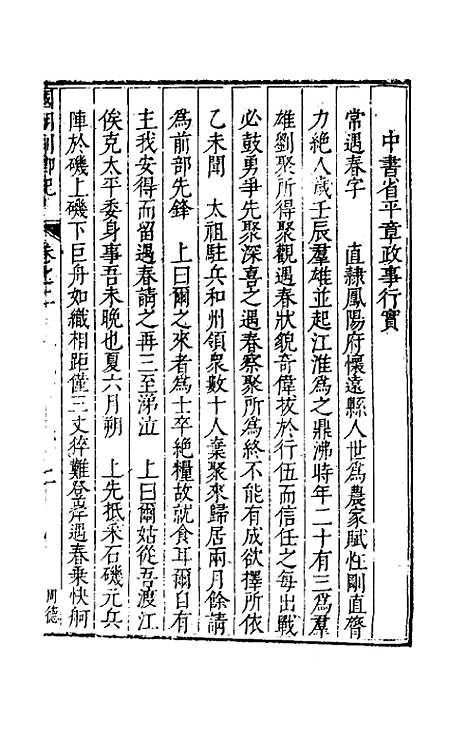 中書省平章政事行實
常遇春字　直隸鳳陽府懷遠縣人世爲農家賦性剛直膂
力絶人歲壬辰羣雄並起江淮爲之鼎沸時年二十有三爲羣
雄劉聚所得聚觀遇春狀貌奇偉拔於行伍而信任之每出戰
必鼓勇爭先聚深喜之遇春察聚所爲終不能有成欲擇所依
乙未聞　太祖駐兵和州領衆數十人棄聚來歸居兩月餘請
爲前部先鋒　上曰爾之來者爲士卒絶糧故就食耳爾自有
主我安得而留遇春請之再三至涕泣　上曰爾姑從吾渡江
俟克太平委身事吾未晚也夏六月朔　上先抵采石磯元兵
陣於磯上磯下巨舟如織相距僅三丈猝難登岸遇春乘快舸
卷之二
周德